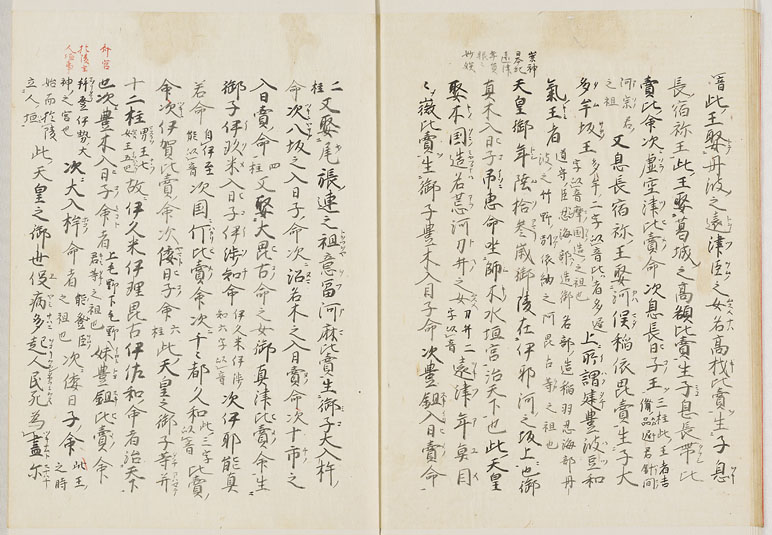 崇神
日本紀
遠津
年魚
眼〻
妙媛
此王娶丹波之遠津臣之女名高材比賣生子息
長宿祢王此王娶葛城之高額比賣生子息長帶比
賣比命次虚空津比賣命次息長日子王三柱此王者吉備品遅君針間
阿宗君之祖又息長宿祢王娶河俣稲依毘賣生子大
多牟坂王多牟二字以音此者多遅摩国造之祖也上所謂建豊波豆和
氣王者道守臣忍海部造御名部造稲羽忍海部丹波之竹野別依網之阿毘古等之祖也
天皇御年陸拾叁歳御陵在伊邪河之坂上也御
真木入日子印恵命坐師木水垣宮治天下也此天皇
娶木国造名荒河刀弁之女刀弁二字以音遠津年魚目
〻微比賣生御子豊木入日子命次豊鉏入日賣命
二柱又娶尾張連之祖意冨阿麻比賣生御子大入杵
命次八坂之入日子命次沼名木之入日賣命次十市之
入日賣命四柱又娶大毘古命之女御真津比賣命生
御子伊玖米入日子伊沙知命伊久米伊沙知六字以音次伊邪能真
若命自伊至能以音次国片比賣命次千〻都久和此三字以音比賣
命次伊賀比賣命次倭日子命六柱此天皇之御子等并
十二柱男王七女王五也故伊久米伊理毘古伊佐知命者治天下
也次豊木入日子命者上毛野下毛野君等之祖也妹豊鉏比賣命
拝祭伊勢大神之宮也次大入杵命者能登臣之祖也次倭日子命此王之時
始而於陵立人垣此天皇之御世伇病多起人民死為盡尓